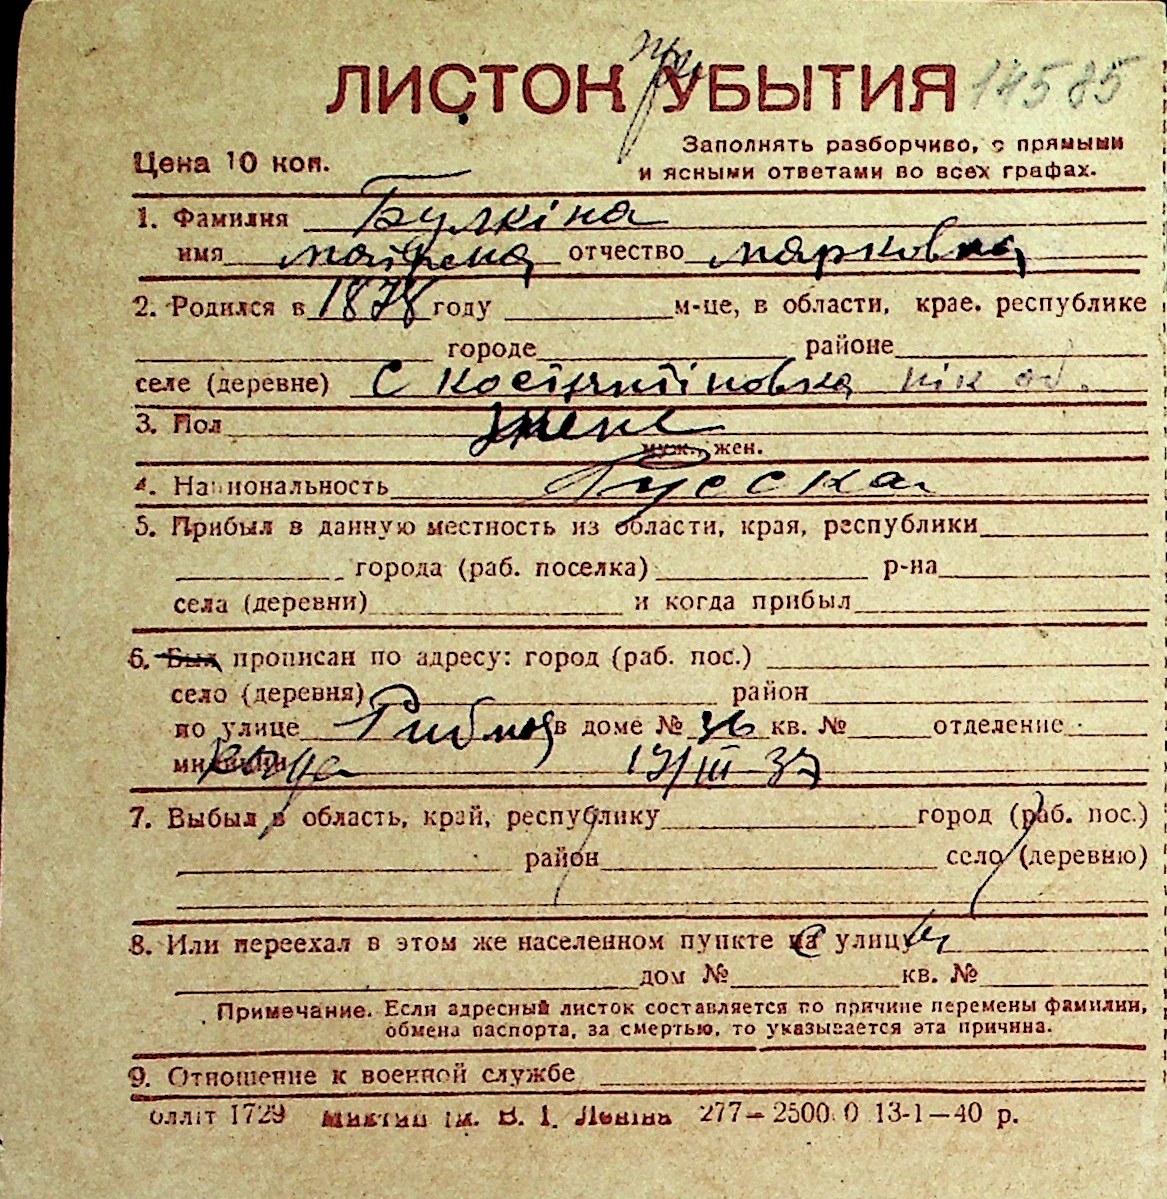 ЛИСТОК УБЫТИЯ 14585
Цена 10 коп.
Заполнять разборчиво, с прямыми
и ясными ответами во всех графах.
1. Фамилия Булкіна
имя отчество марковна
2. Родился в 1878 году м-це, в области, крае. республике
городе районе
селе (деревне) С
3. Пол женс
муж., жен.
4. Национальность Русска
5. Прибыл в данную местность из области, края, республики
города (раб. поселка) р-на
села (деревни) и когда прибыл
6. Был прописан по адресу: город (раб. пос.)
село (деревня) район
по улице в доме № 36 кв. № отделение
милиции 37
7. Выбыл в область, край, республику город (раб. пос.)
район село (деревню)
8. Или переехал в этом же населенном пункте на улицу
дом № кв. №
Примечание. Если адресный листок составляется по причине перемены фамилии,
обмена паспорта, за смертью, то указывается эта причина.
9. Отношение к военной службе
оллiт 1729 ім. В. І. Леніна 277—2500.0 13-1—40 р.